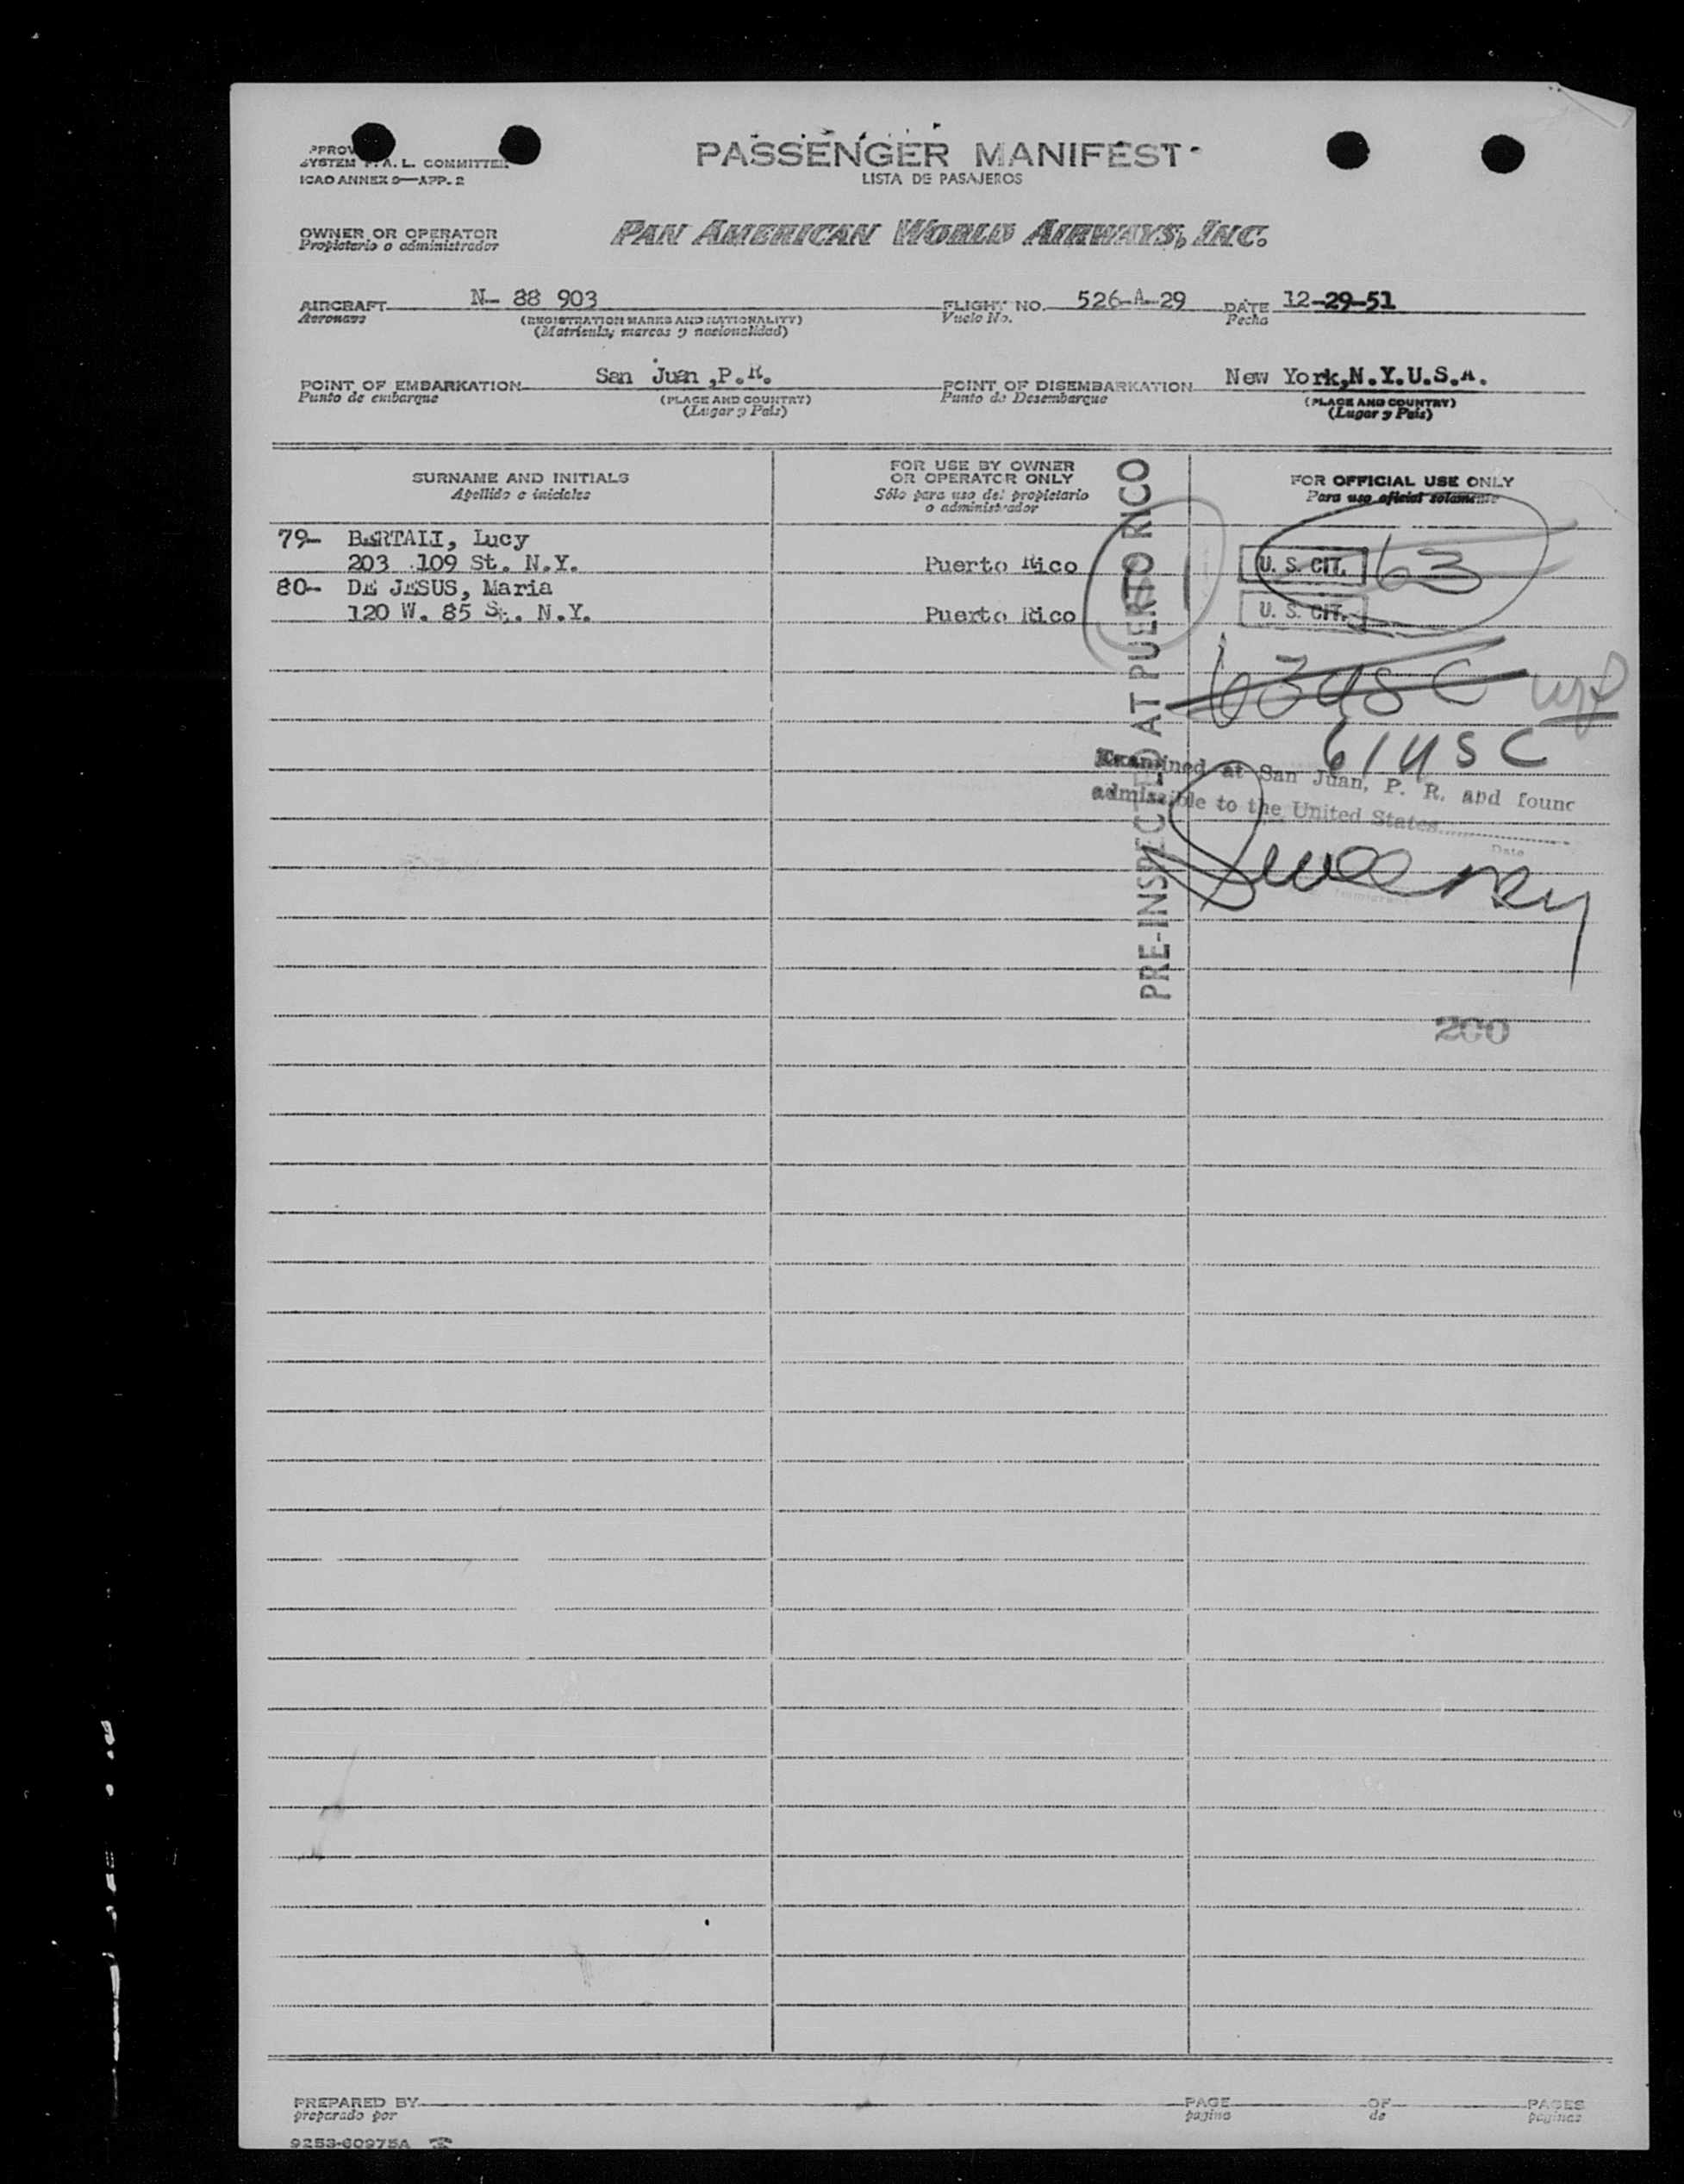 PASSENGER MANIFEST
LISTA DE PASAJEROS
SYSTEM F. A. L. COMMITTEE
ICAO ANNEX 9—APP. 2
OWNER OR OPERATOR
Propietario o administrador
PAN AMERICAN WORLD AIRWAYS, INC.
AIRCRAFT N- 88 903 FLIGHT NO. 526-A-29 DATE 12-29-51
Aeronave (REGISTRATION MARKS AND NATIONALITY) Vuelo No. Fecha
(Matrícula, marcas y nacionalidad)
POINT OF EMBARKATION San Juan ,P.R. POINT OF DISEMBARKATION New York,N.Y.U.S.A.
Punto de embarque (PLACE AND COUNTRY) Punto de Desembarque (PLACE AND COUNTRY)
(Lugar y País) (Lugar y País)
SURNAME AND INITIALS
Apellido e iniciales
FOR USE BY OWNER
OR OPERATOR ONLY
Sólo para uso del propietario
o administrador
FOR OFFICIAL USE ONLY
Para uso oficial solamente
79- BARTALI, Lucy
203 109 St. N.Y. Puerto Rico U. S. CIT. 63
80- DE JESUS, Maria
120 W. 85 St. N.Y. Puerto Rico U. S. CIT.
PRE-INSPECTED AT PUERTO RICO
63 USC
61 USC
Examined at San Juan, P. R. and found
admissible to the United States
Date
200
PREPARED BY PAGE OF PAGES
preparado por pagina de paginas
9253-60975A